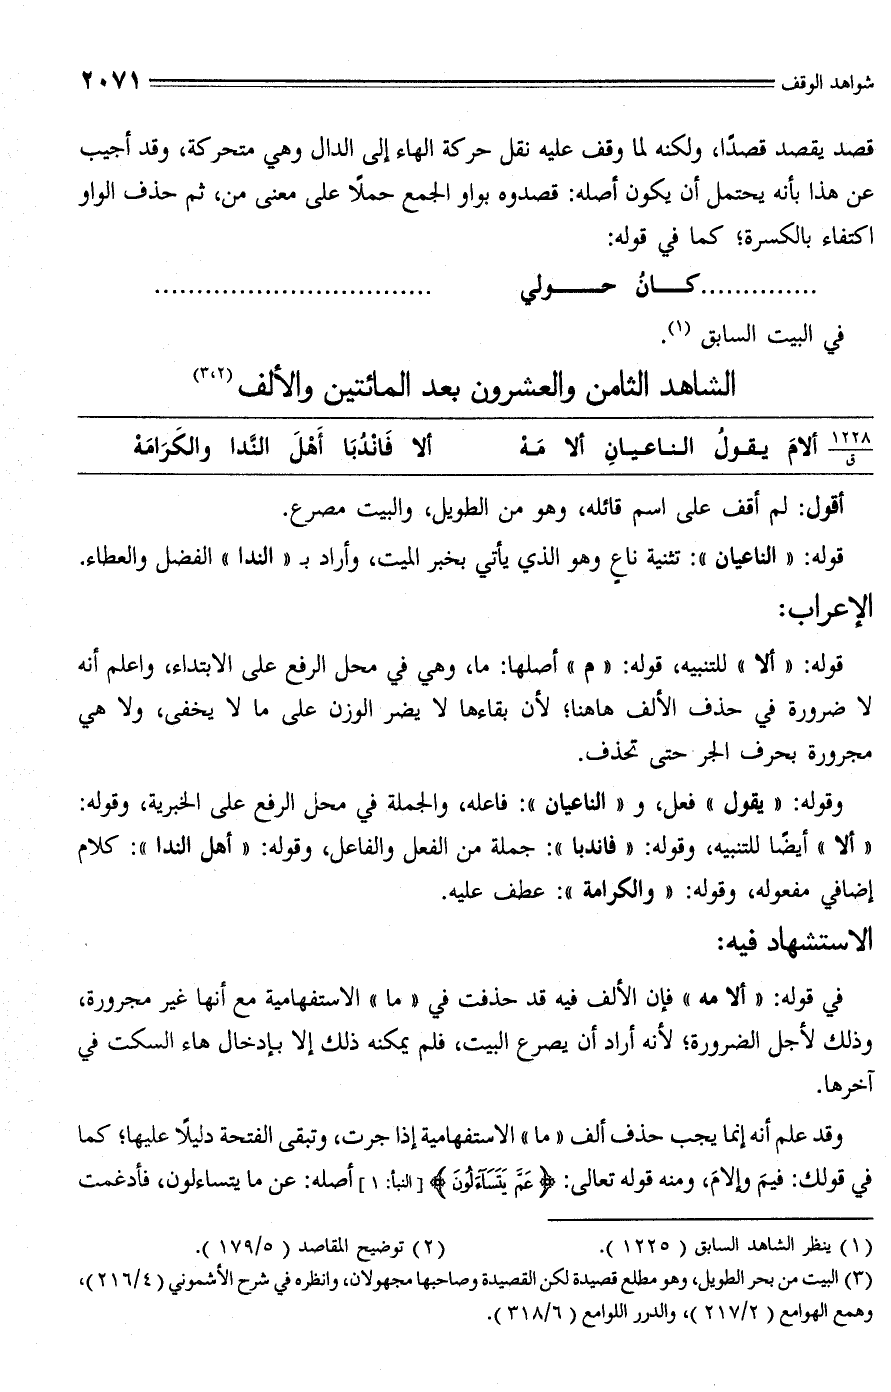 شواهد الوقف ٢٠٧١
قصد يقصد قصدًا، ولكنه لما وقف عليه نقل حركة الهاء إلى الدال وهي متحركة، وقد أجيب
عن هذا بأنه يحتمل أن يكون أصله: قصدوه بواو الجمع حملًا على معنى من، ثم حذف الواو
اكتفاء بالكسرة؛ كما في قوله:
..............كـــانُ حـــولي .................................
في البيت السابق (١).
الشاهد الثامن والعشرون بعد المائتين والألف (٣،٢)
١٢٢٨ ق ألامَ يـقـولُ الـنـاعـيـانِ ألا مَـهْ ألا فَانْدُبَا أَهْلَ النَّدا والكَرَامَهْ
أقول: لم أقف على اسم قائله، وهو من الطويل، والبيت مصرع.
قوله: « الناعيان »: تثنية ناعٍ وهو الذي يأتي بخبر الميت، وأراد بـ « الندا » الفضل والعطاء.
الإعراب:
قوله: « ألا » للتنبيه، قوله: « م » أصلها: ما، وهي في محل الرفع على الابتداء، واعلم أنه
لا ضرورة في حذف الألف هاهنا؛ لأن بقاءها لا يضر الوزن على ما لا يخفى، ولا هي
مجرورة بحرف الجر حتى تحذف.
وقوله: « يقول » فعل، و « الناعيان »: فاعله، والجملة في محل الرفع على الخبرية، وقوله:
« ألا » أيضًا للتنبيه، وقوله: « فاندبا »: جملة من الفعل والفاعل، وقوله: « أهل الندا »: كلام
إضافي مفعوله، وقوله: « والكرامة »: عطف عليه.
الاستشهاد فيه:
في قوله: « ألا مه » فإن الألف فيه قد حذفت في « ما » الاستفهامية مع أنها غير مجرورة،
وذلك لأجل الضرورة؛ لأنه أراد أن يصرع البيت، فلم يمكنه ذلك إلا بإدخال هاء السكت في
آخرها.
وقد علم أنه إنما يجب حذف ألف « ما » الاستفهامية إذا جرت، وتبقى الفتحة دليلًا عليها؛ كما
في قولك: فيمَ وإلامَ، ومنه قوله تعالى: ﴿ عَمَّ يَتَسَآءَلُونَ ﴾ [ النبأ: ١ ] أصله: عن ما يتساءلون، فأدغمت
(١) ينظر الشاهد السابق ( ١٢٢٥ ). (٢) توضيح المقاصد ( ١٧٩/٥ ).
(٣) البيت من بحر الطويل، وهو مطلع قصيدة لكن القصيدة وصاحبها مجهولان، وانظره في شرح الأشموني ( ٢١٦/٤ )،
وهمع الهوامع ( ٢١٧/٢ )، والدرر اللوامع ( ٣١٨/٦ ).